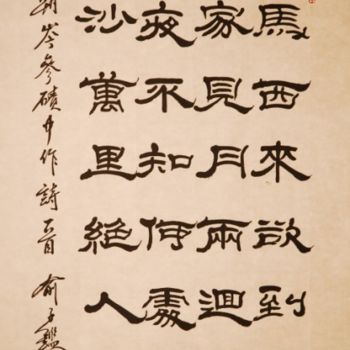 馬西來欲到
家見月兩迴
夜不知何處
沙萬里絕人
岑參磧中作詩一首 俞